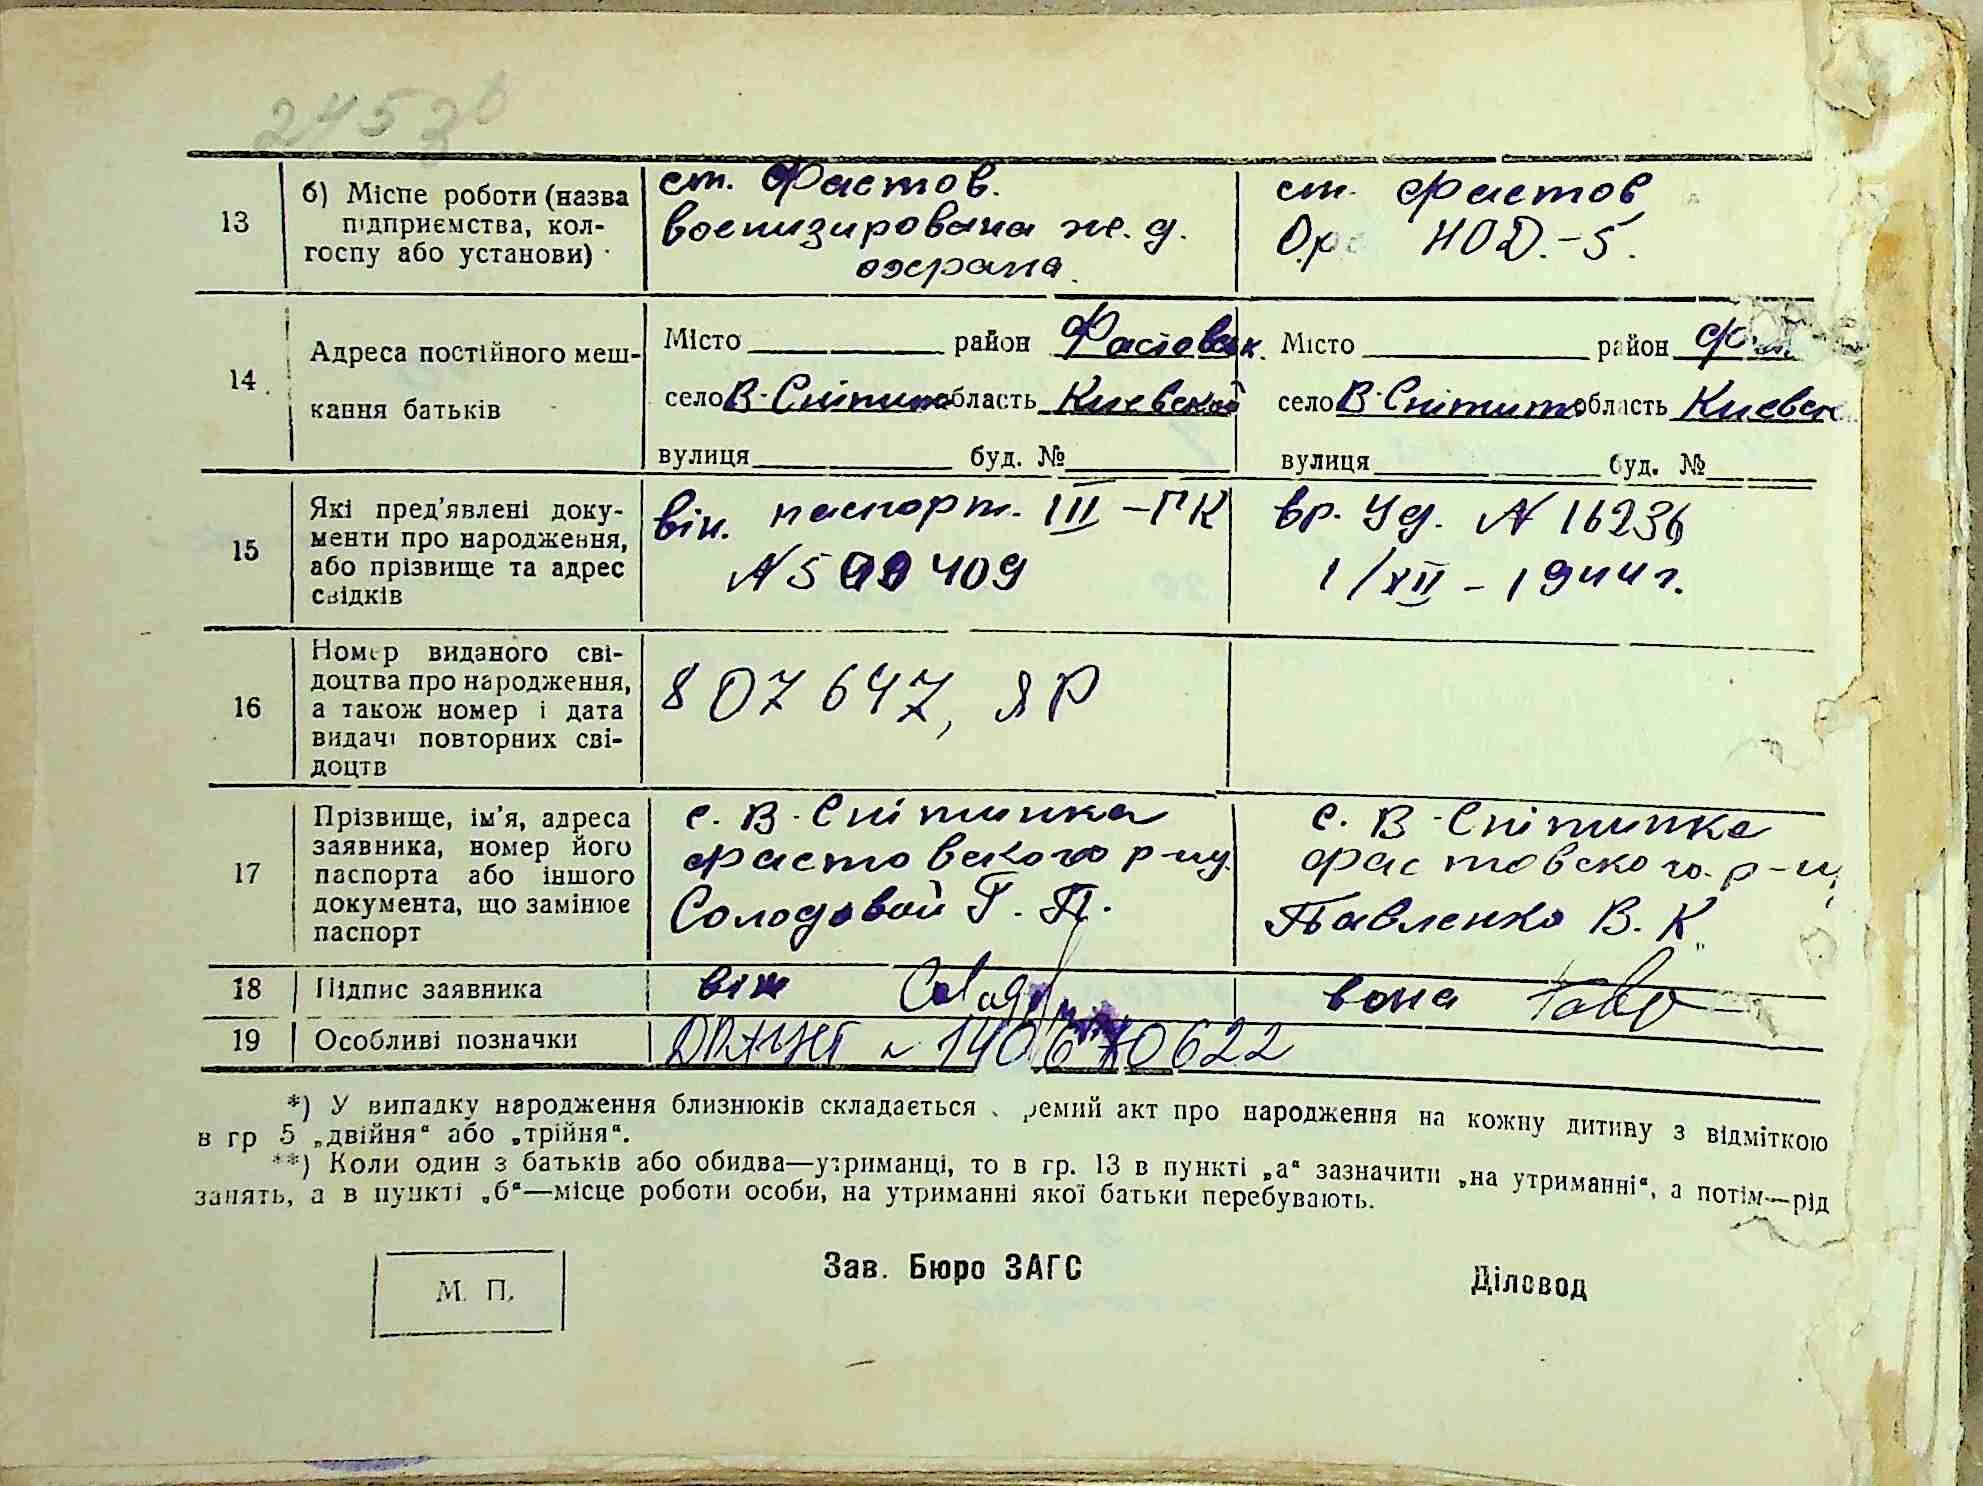 13
б) Місце роботи (назва
підприємства, кол-
госпу або установи)
ст. Фастов.
воєнизирована ж.д.
охрана.
ст. Фастов
НОД.-5.
14
Адреса постійного меш-
кання батьків
Місто район Фастовск.
село В-Снітинк область Киевской
вулиця буд. №
Місто район
село В-Снітинк область Киевск
вулиця буд. №
15
Які пред'явлені доку-
менти про народження,
або прізвище та адрес
свідків
він. паспорт. III-ГК
№ 409
вр. Уд. № 16236
1/XII-1944г.
16
Номер виданого сві-
доцтва про народження,
а також номер і дата
видачі повторних сві-
доцтв
807647, ЯР
17
Прізвище, ім'я, адреса
заявника, номер його
паспорта або іншого
документа, що замінює
паспорт
с. В-Снітинка
фастовского р-ну
Солодовой Г. П.
с. В-Снітинка
фастовского р-ну
Павленко В. К.
18
Підпис заявника
він
вона
19
Особливі позначки
*) У випадку народження близнюків складається окремий акт про народження на кожну дитину з відміткою
в гр 5 „двійня“ або „трійня“.
**) Коли один з батьків або обидва—утриманці, то в гр. 13 в пункті „а“ зазначити „на утриманні“, а потім—рід
занять, а в пункті „б“—місце роботи особи, на утриманні якої батьки перебувають.
М. П.
Зав. Бюро ЗАГС
Діловод